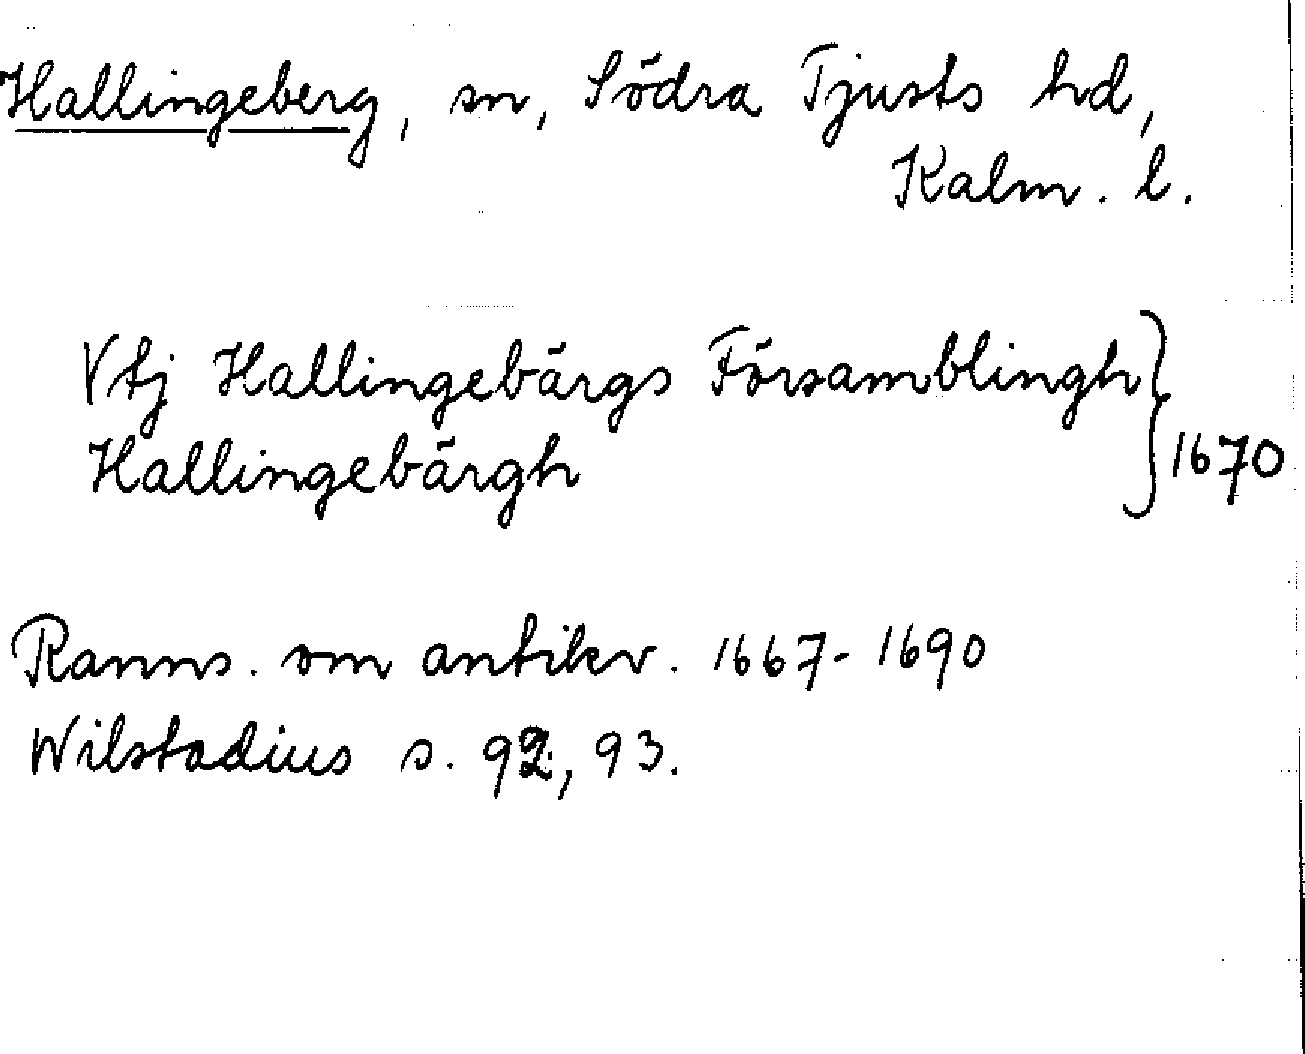 Hallingeberg, sn, Södra Tjusts hd,
Kalm. l.
Vtj Hallingebärgs Församblingh
Hallingebärgh
} 1670
Ranns. om antikv. 1667-1690
Wilstadius s. 92, 93.